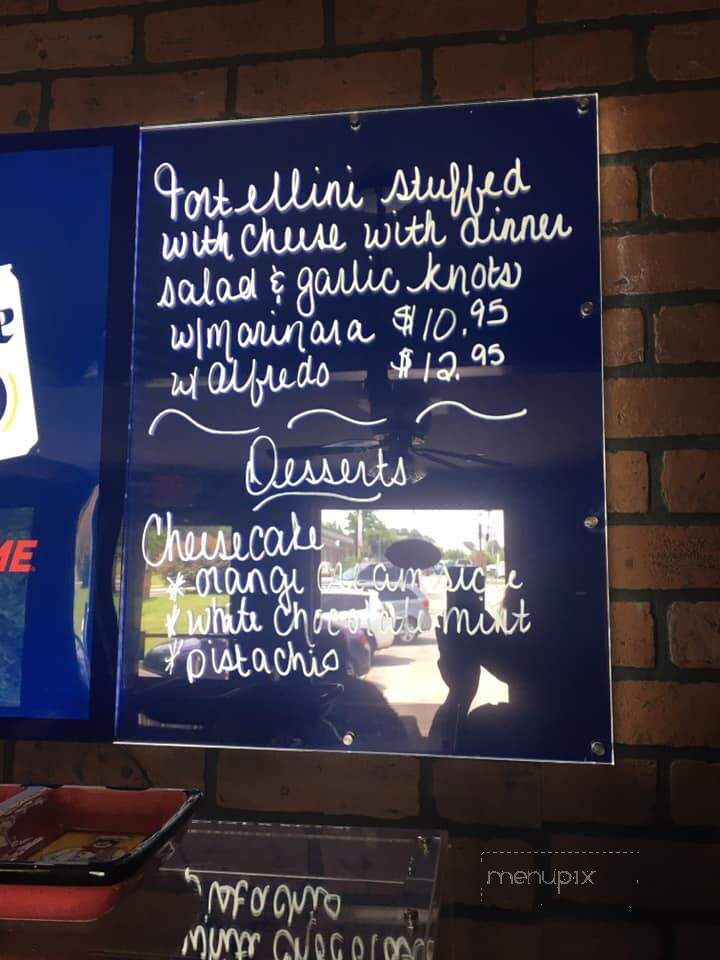 Tortellini stuffed
with cheese with dinner
salad & garlic knots
w/marinara $10.95
w/ alfredo $12.95
Desserts
Cheesecake
* orange creamsicle
* white chocolate mint
* pistachio
ME
menupix